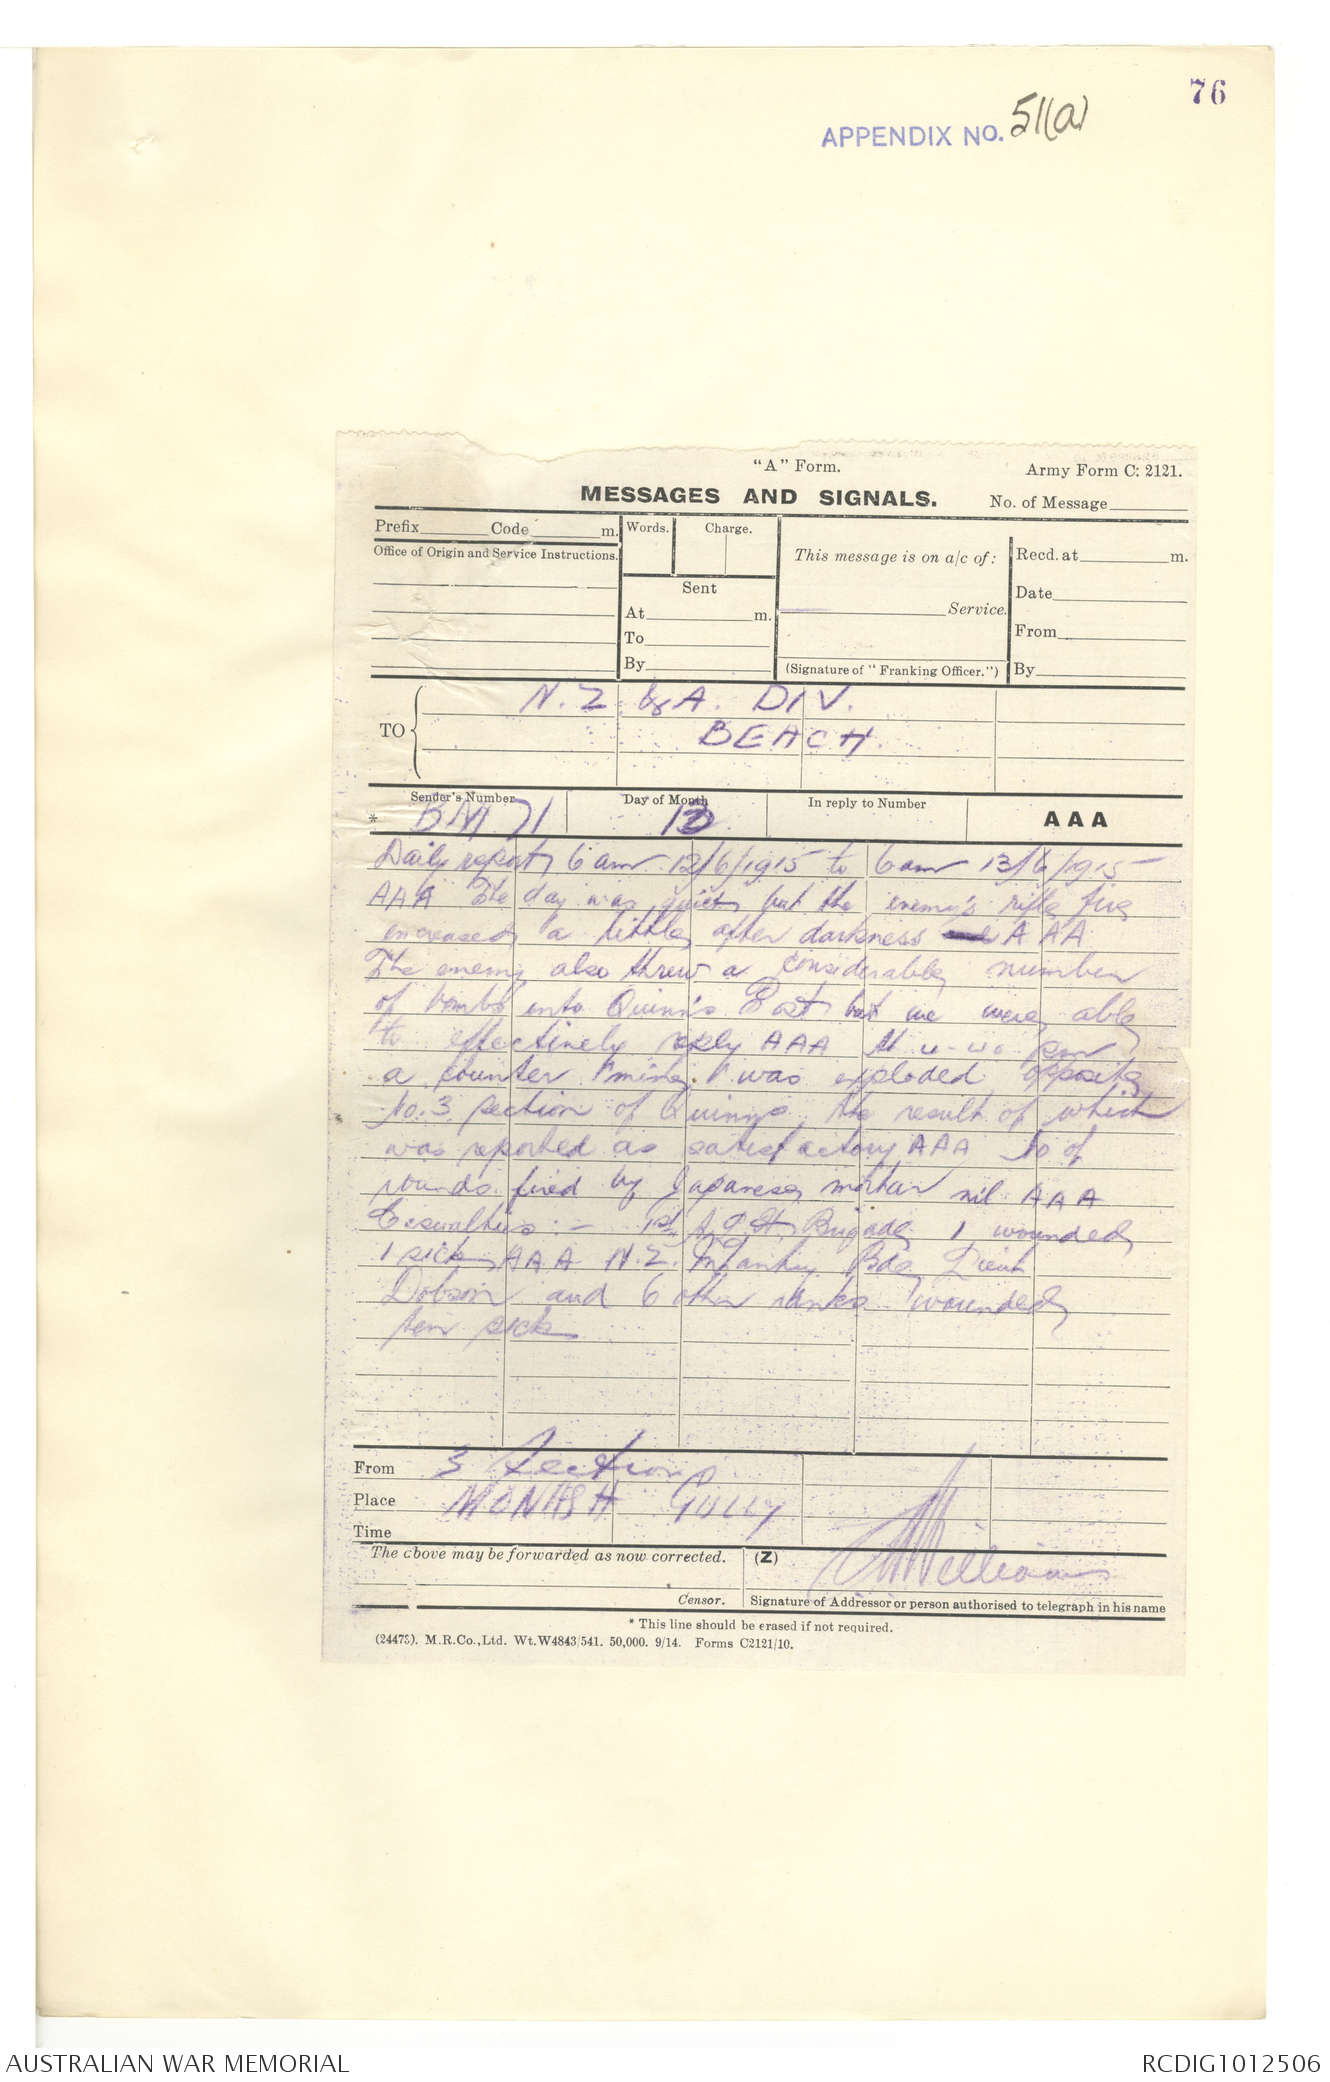 76
APPENDIX NO. 51(a)
"A" Form. Army Form C: 2121.
MESSAGES AND SIGNALS. No. of Message
Prefix Code m. Words. Charge.
This message is on a/c of: Recd. at m.
Office of Origin and Service Instructions.
Sent
At m. Service. Date
To From
By (Signature of "Franking Officer.") By
TO N.Z & A. DIV.
BEACH.
Sender's Number Day of Month In reply to Number AAA
* BM 71 13
Daily report 6 am 12/6/1915 to 6 am 13/6/1915
AAA The day was quiet but the enemy's rifle fire
increased a little after darkness AAA
The enemy also threw a considerable number
of bombs into Quinn's Post but we were able
to effectively reply AAA At pm
a counter mine was exploded opposite
No. 3 section of Quinn's the result of which
was reported as satisfactory AAA No of
rounds fired by Japanese mortar nil AAA
Casualties:- 1st A L H Brigade 1 wounded
1 sick AAA N.Z. Infantry Bde Lieut
Dobson and 6 other ranks wounded
ten sick
From 3 Section
Place MONASH GULLY
Time
The above may be forwarded as now corrected. (Z)
Censor. Signature of Addressor or person authorised to telegraph in his name
* This line should be erased if not required.
(24473). M.R.Co.,Ltd. Wt.W4843/541. 50,000. 9/14. Forms C2121/10.
AUSTRALIAN WAR MEMORIAL RCDIG1012506